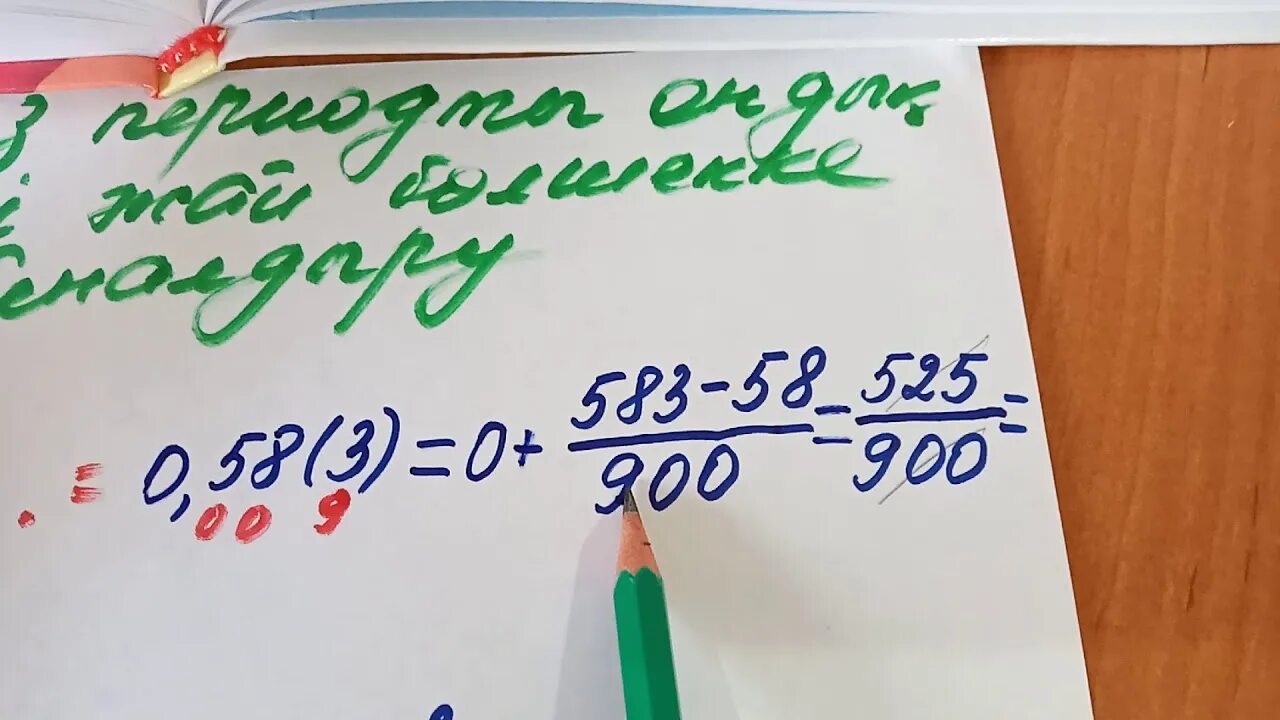 з периодты ондық
жай бөлшекке
налдыру
= 0,58(3) = 0 + 583-58/900 = 525/900 =
00 9